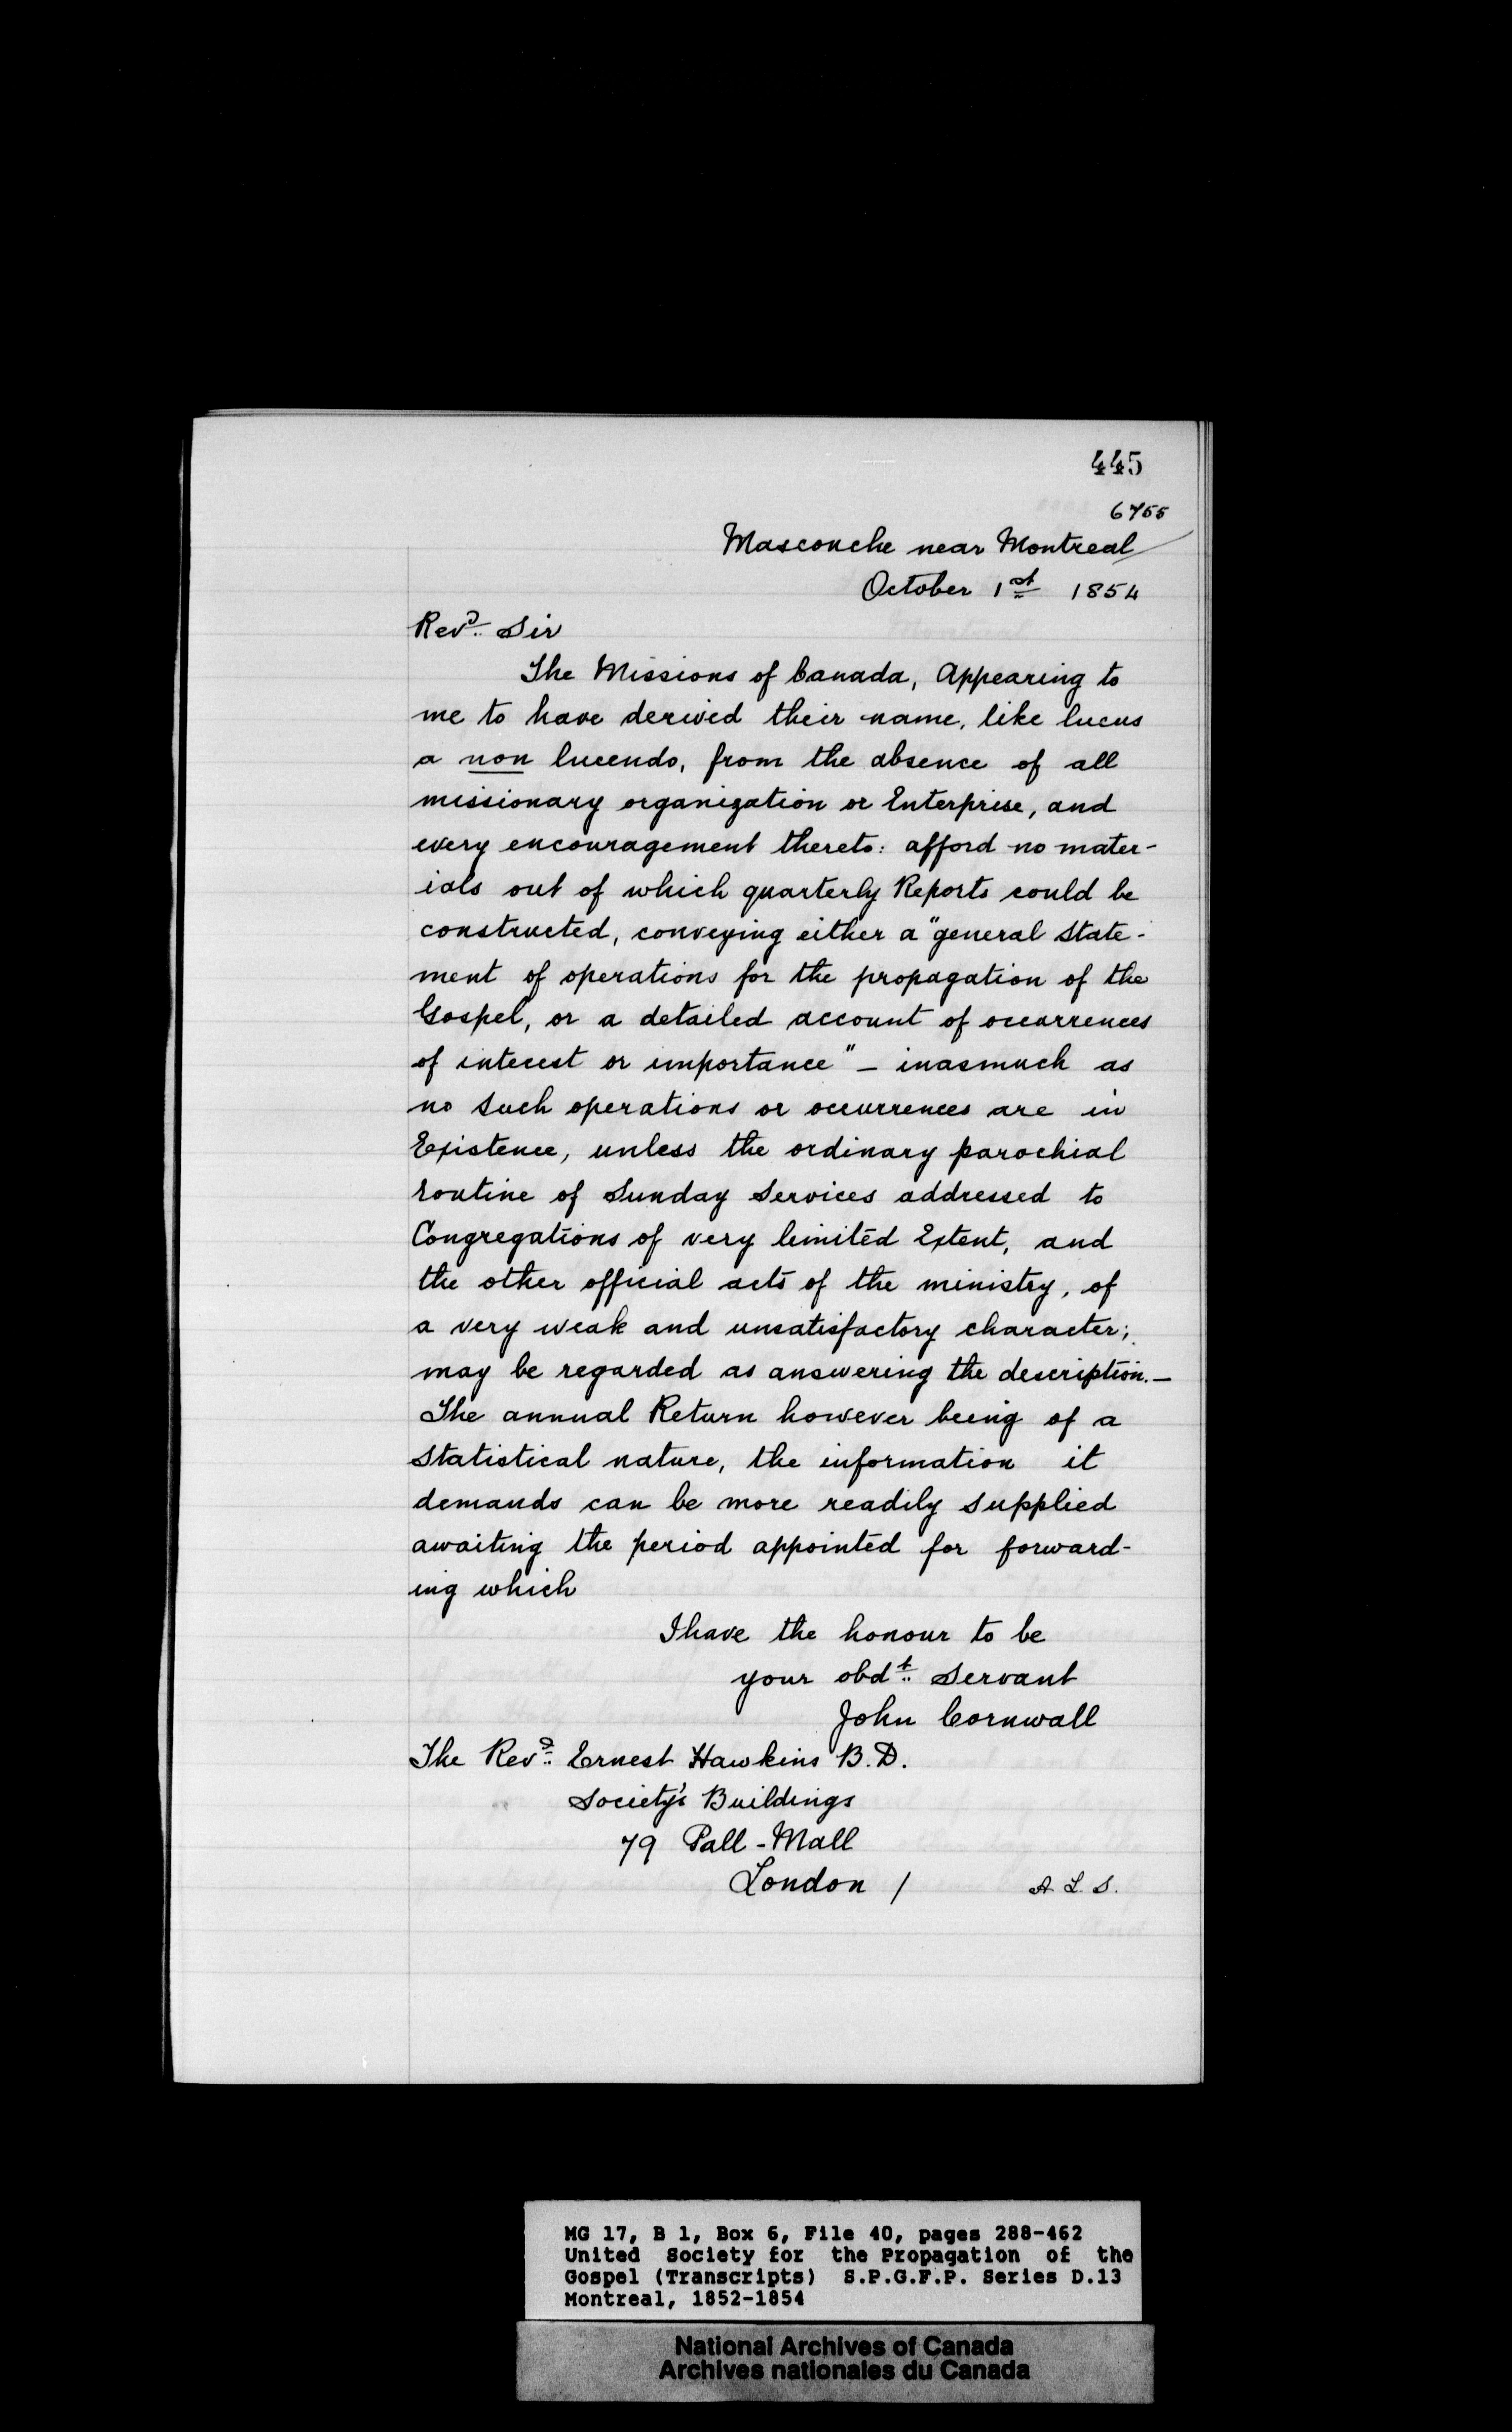 445
6755
Mascouche near Montreal
October 1st 1854
Revd. Sir
The Missions of Canada, Appearing to
me to have derived their name, like lucus
a non lucendo, from the absence of all
missionary organization or Enterprise, and
every encouragement thereto: afford no mater-
ials out of which quarterly Reports could be
constructed, conveying either a "general State-
ment of operations for the propagation of the
Gospel, or a detailed account of occurrences
of interest or importance" - inasmuch as
no such operations or occurrences are in
Existence, unless the ordinary parochial
routine of Sunday Services addressed to
Congregations of very limited Extent, and
the other official acts of the ministry, of
a very weak and unsatisfactory character;
may be regarded as answering the description.-
The annual Return however being of a
Statistical nature, the information it
demands can be more readily supplied
awaiting the period appointed for forward-
ing which
I have the honour to be
your obdt. Servant
John Cornwall
The Revd. Ernest Hawkins B.D.
Society's Buildings
79 Pall-Mall
London /
A. L. S.
MG 17, B 1, Box 6, File 40, pages 288-462
United Society for the Propagation of the
Gospel (Transcripts) S.P.G.F.P. Series D.13
Montreal, 1852-1854
National Archives of Canada
Archives nationales du Canada